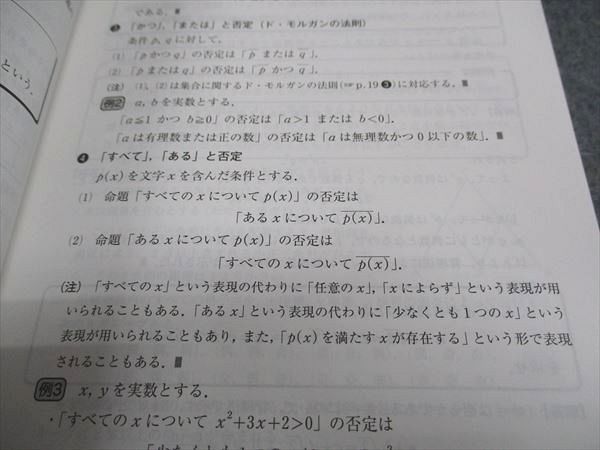 である.
という.
❸ 「かつ」,「または」と否定（ド・モルガンの法則）
条件 p, q に対して,
(1) 「p かつ q」の否定は「p̅ または q̅」.
(2) 「p または q」の否定は「p̅ かつ q̅」.
(注) (1), (2)は集合に関するド・モルガンの法則(☞ p.19 ❸)に対応する. ■
例2 a, b を実数とする.
「a≦1 かつ b≧0」の否定は「a>1 または b<0」.
「a は有理数または正の数」の否定は「a は無理数かつ 0 以下の数」. ■
❹ 「すべて」,「ある」と否定
p(x) を文字 x を含んだ条件とする.
(1) 命題「すべての x について p(x)」の否定は
「ある x について p̅(̅x̅)̅」.
(2) 命題「ある x について p(x)」の否定は
「すべての x について p̅(̅x̅)̅」.
(注) 「すべての x」という表現の代わりに「任意の x」,「x によらず」という表現が用
いられることもある.「ある x」という表現の代わりに「少なくとも 1 つの x」という
表現が用いられることもあり, また,「p(x) を満たす x が存在する」という形で表現
されることもある. ■
例3 x, y を実数とする.
・「すべての x について x²+3x+2>0」の否定は